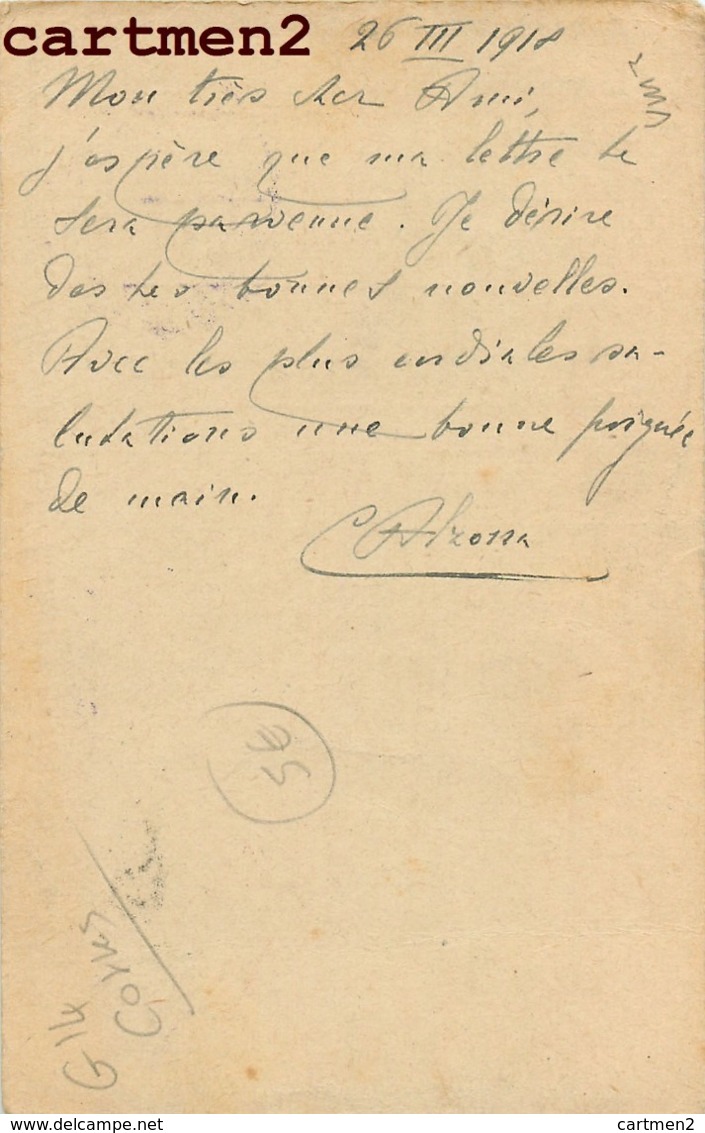 cartmen2
26 III 1918
Mon très cher Ami,
j'espère que ma lettre te
sera parvenue. Je désire
des tes bonnes nouvelles.
Avec les plus cordiales sa-
lutations une bonne poignée
de main.
5€
G 14
cartmen2